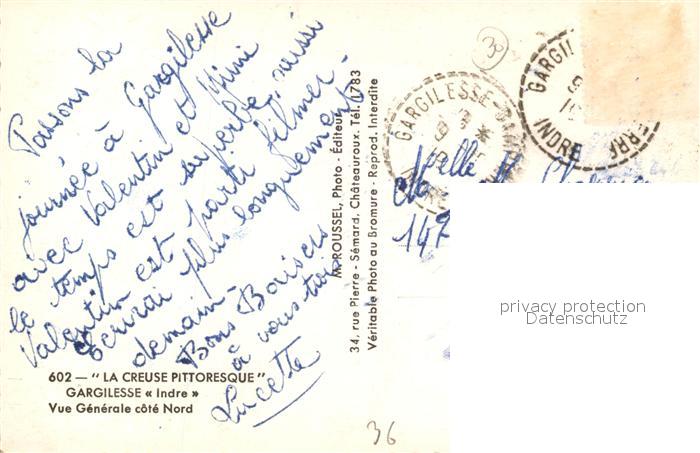 Passons la
journée à Gargilesse
avec Valentin et Mimi
le temps est superbe aussi
Valentin est parti filmer.
Ecrirai plus longuement
demain -
Bons Baisers
à vous tous
Lucette
602 — " LA CREUSE PITTORESQUE "
GARGILESSE « Indre »
Vue Générale côté Nord
M. ROUSSEL, Photo - Éditeur
34, rue Pierre - Sémard, Châteauroux. Tél. 1783
Véritable Photo au Bromure - Reprod. Interdite
30
GARGILESSE-DAMPIERRE
INDRE
GARGILESSE
INDRE
Melle
147
privacy protection
Datenschutz
36